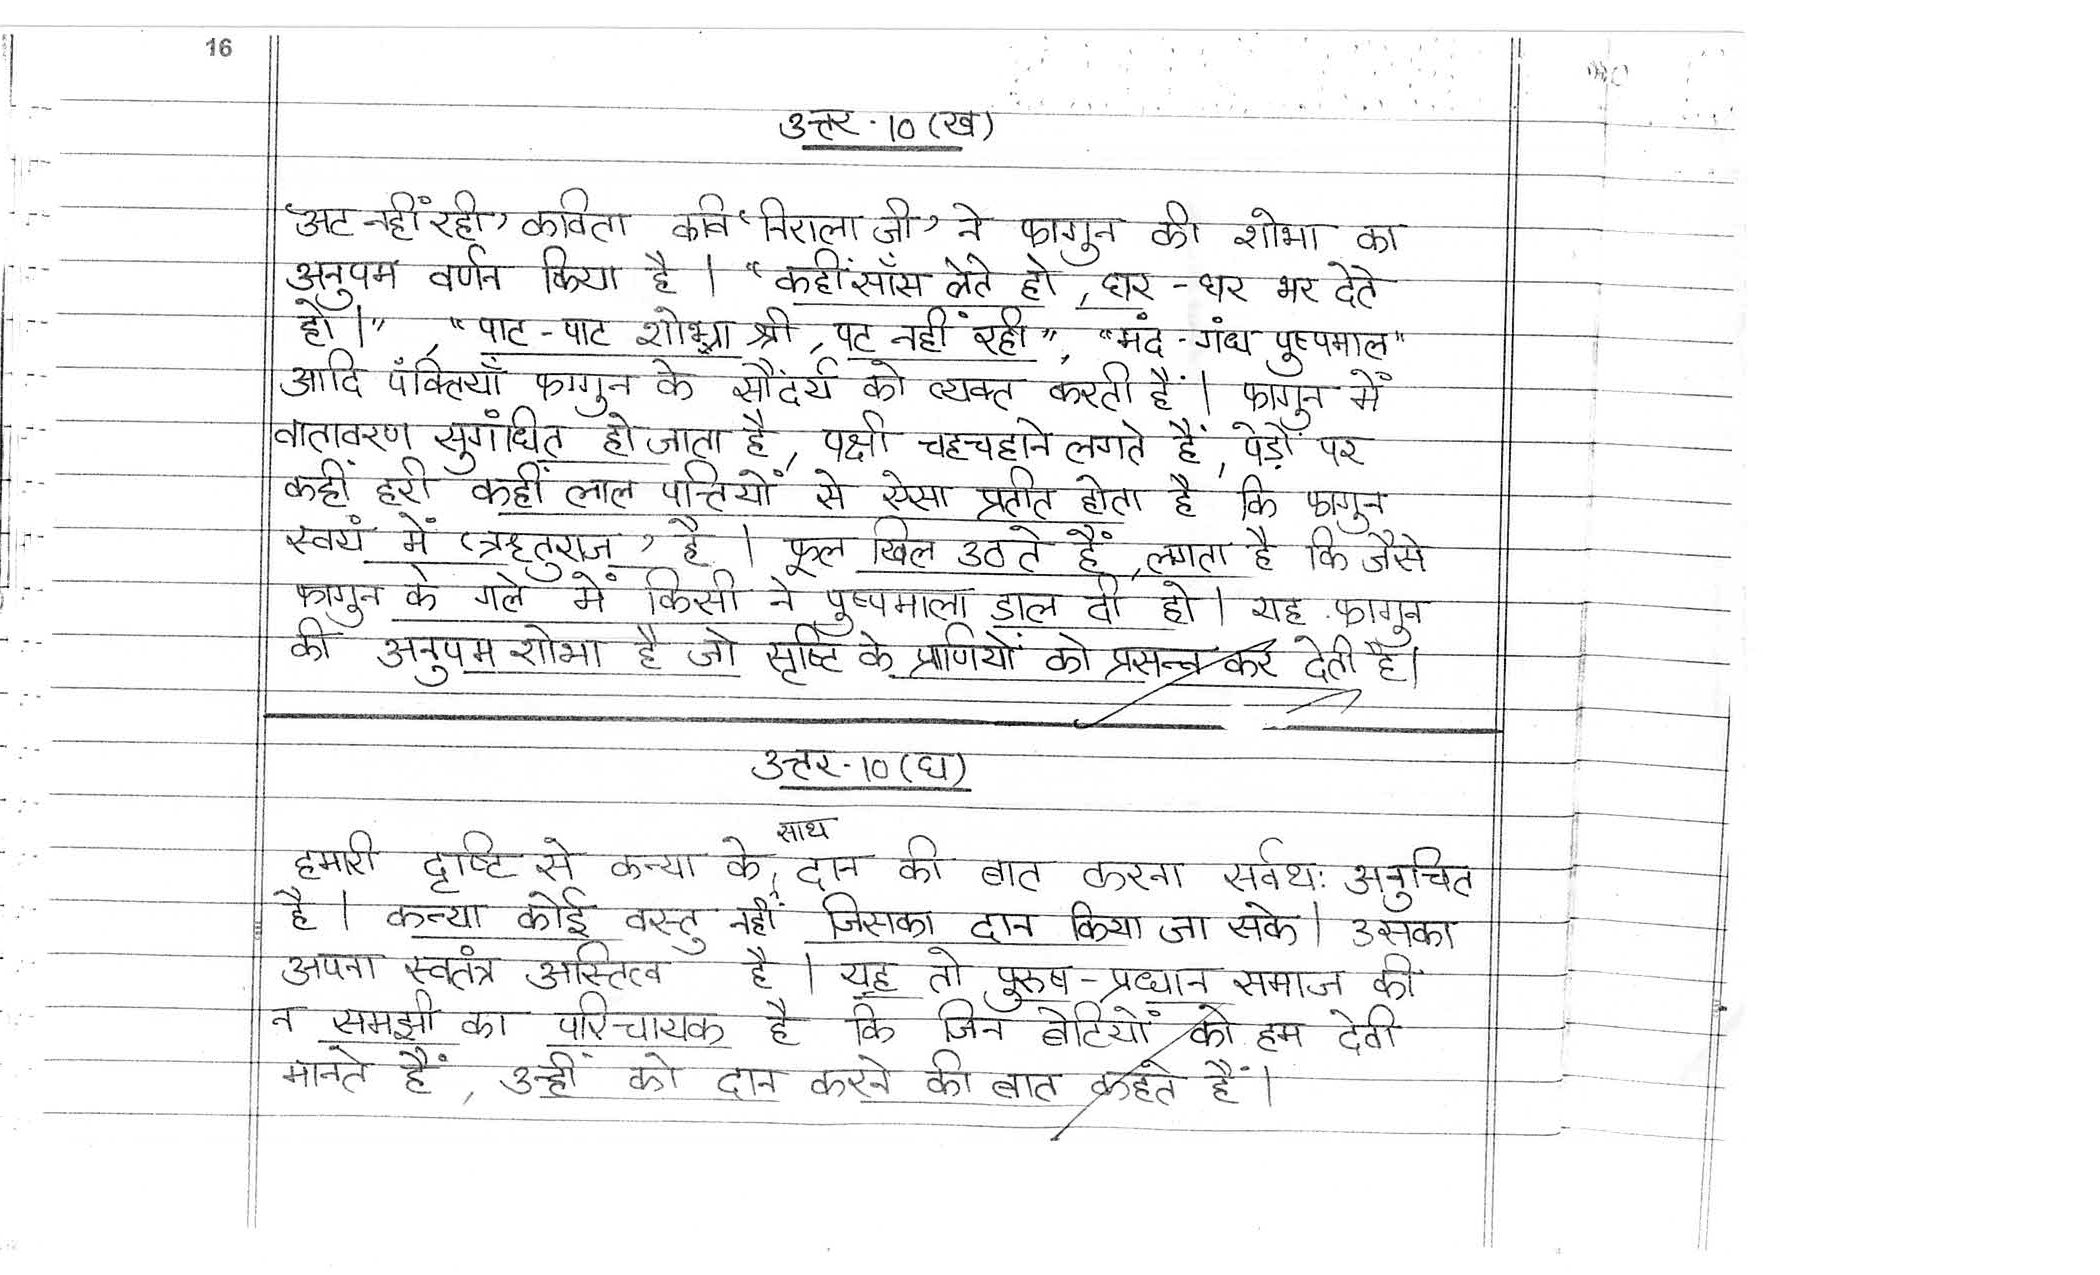 16
उत्तर-10 (ख)
'अट नहीं रही' कविता कवि 'निराला जी' ने फागुन की शोभा का
अनुपम वर्णन किया है। "कहीं साँस लेते हो, घर-घर भर देते
हो।", "पाट-पाट शोभा श्री, पट नहीं रही", "मंद-गंध पुष्पमाल"
आदि पंक्तियाँ फागुन के सौंदर्य को व्यक्त करती हैं। फागुन में
वातावरण सुगंधित हो जाता है, पक्षी चहचहाने लगते हैं, पेड़ों पर
कहीं हरी कहीं लाल पत्तियों से ऐसा प्रतीत होता है कि फागुन
स्वयं में 'ऋतुराज' है। फूल खिल उठते हैं, लगता है कि जैसे
फागुन के गले में किसी ने पुष्पमाला डाल दी हो। यह फागुन
की अनुपम शोभा है जो सृष्टि के प्राणियों को प्रसन्न कर देती है।
उत्तर-10 (घ)
हमारी दृष्टि से कन्या के साथ दान की बात करना सर्वथः अनुचित
है। कन्या कोई वस्तु नहीं जिसका दान किया जा सके। उसका
अपना स्वतंत्र अस्तित्व है। यह तो पुरुष-प्रधान समाज की
न समझी का परिचायक है कि जिन बेटियों को हम देवी
मानते हैं, उन्हीं को दान करने की बात कहते हैं।